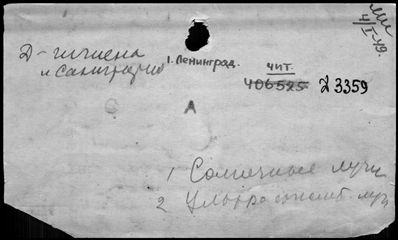 4/I-49.
Д-гигиена
и санитария
1. Ленинград.
чит.
406525
Д 3359
С А
1 Солнечные лучи
2 Ультрафиолет. луч